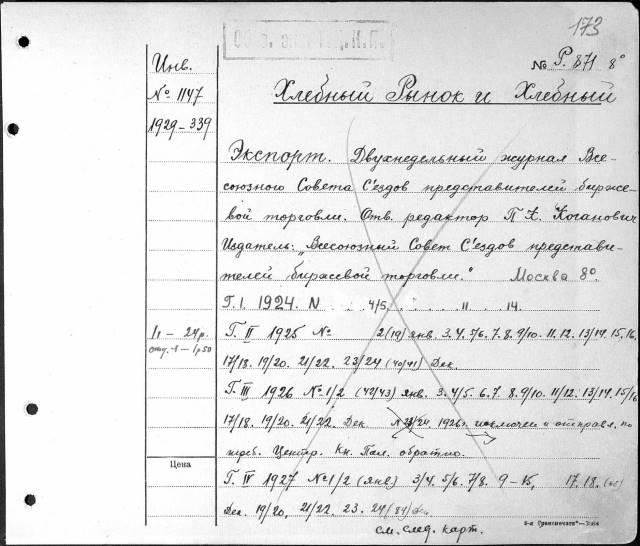 173
№ Р. 871 8°
Инв.
№ 1147
1929-339
Хлебный Рынок и Хлебный
Экспорт. Двухнедельный журнал Все-
союзного Совета С'ездов представителей бирже-
вой торговли. Отв. редактор П. К. Коганович
Издатель: „Всесоюзный Совет С'ездов представи-
телей биржевой торговли." Москва 8°.
Г. I. 1924. N . . . 4/5 . . . . 11 . 14.
1/1 – 24р.
отд. -1 – 1р50
Г. II 1925 № 2(19) янв. 3. 4. 5/6. 7. 8. 9/10. 11. 12. 13/14. 15. 16.
17/18. 19/20. 21/22. 23/24 (40/41) Дек.
Г. III 1926 № 1/2 (42/43) янв. 3. 4/5. 6. 7. 8. 9/10. 11/12. 13/14. 15/16
17/18. 19/20. 21/22. Дек. N 23/24 1926г. исключен и отправл. по
треб. Центр. Кн. Пал. обратно.
Цена
Г. IV 1927 № 1/2 (янв) 3/4. 5/6. 7/8. 9-15, 17. 18.
Дек. 19/20, 21/22. 23. 24
см. след. карт.